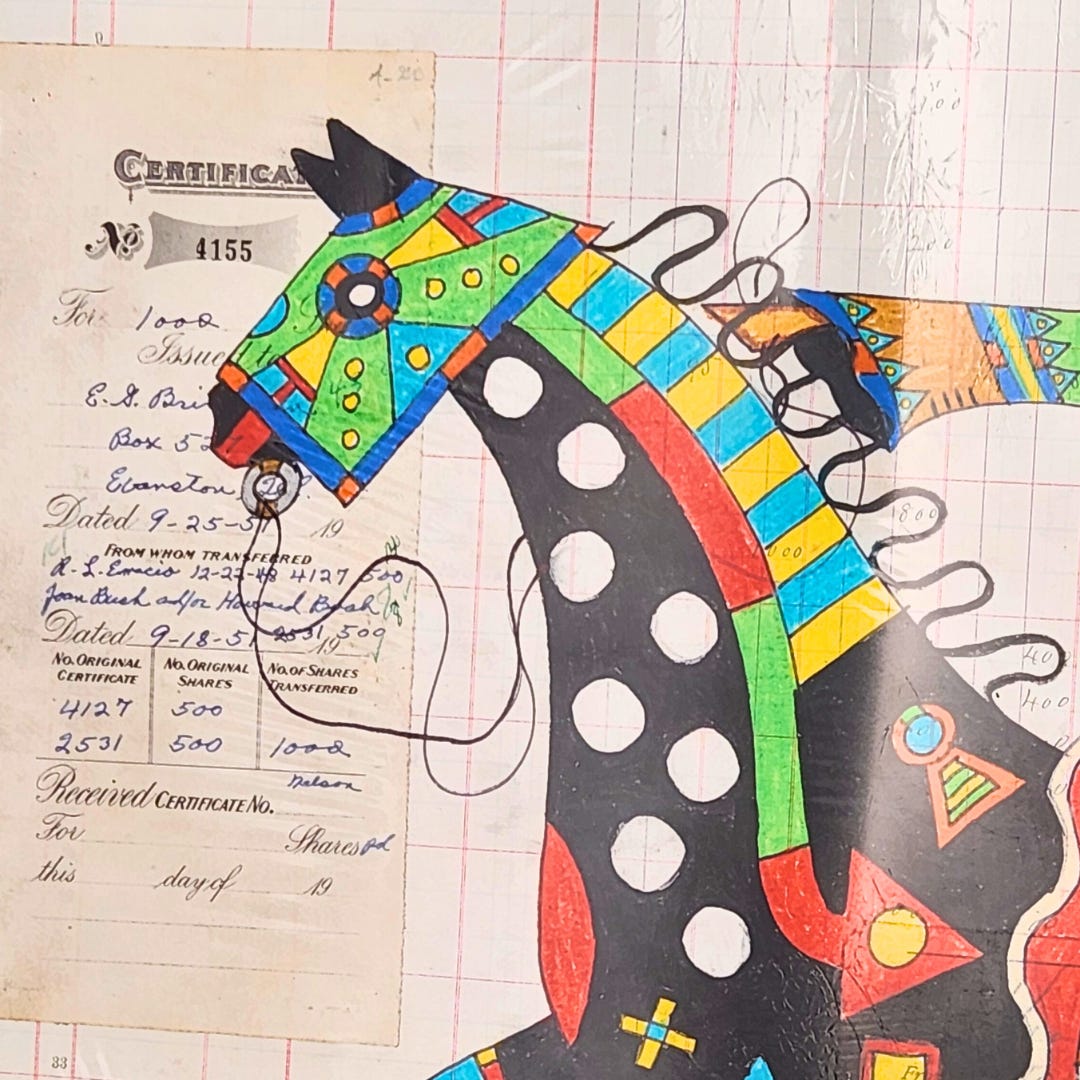 CERTIFICA
No 4155
For 1000
Issue
E. G. Bri
Box 52
Evanston
Dated 9-25-51 19
FROM WHOM TRANSFERRED
12-22-48 4127 500
Joan Bush and/or Howard Bush
Dated 9-18-51 2531 500 19
No. ORIGINAL CERTIFICATE No. ORIGINAL SHARES No. OF SHARES TRANSFERRED
4127 500
2531 500 1000
Nelson
Received CERTIFICATE No.
For Shares
this day of 19
33
100
200
800
400
400